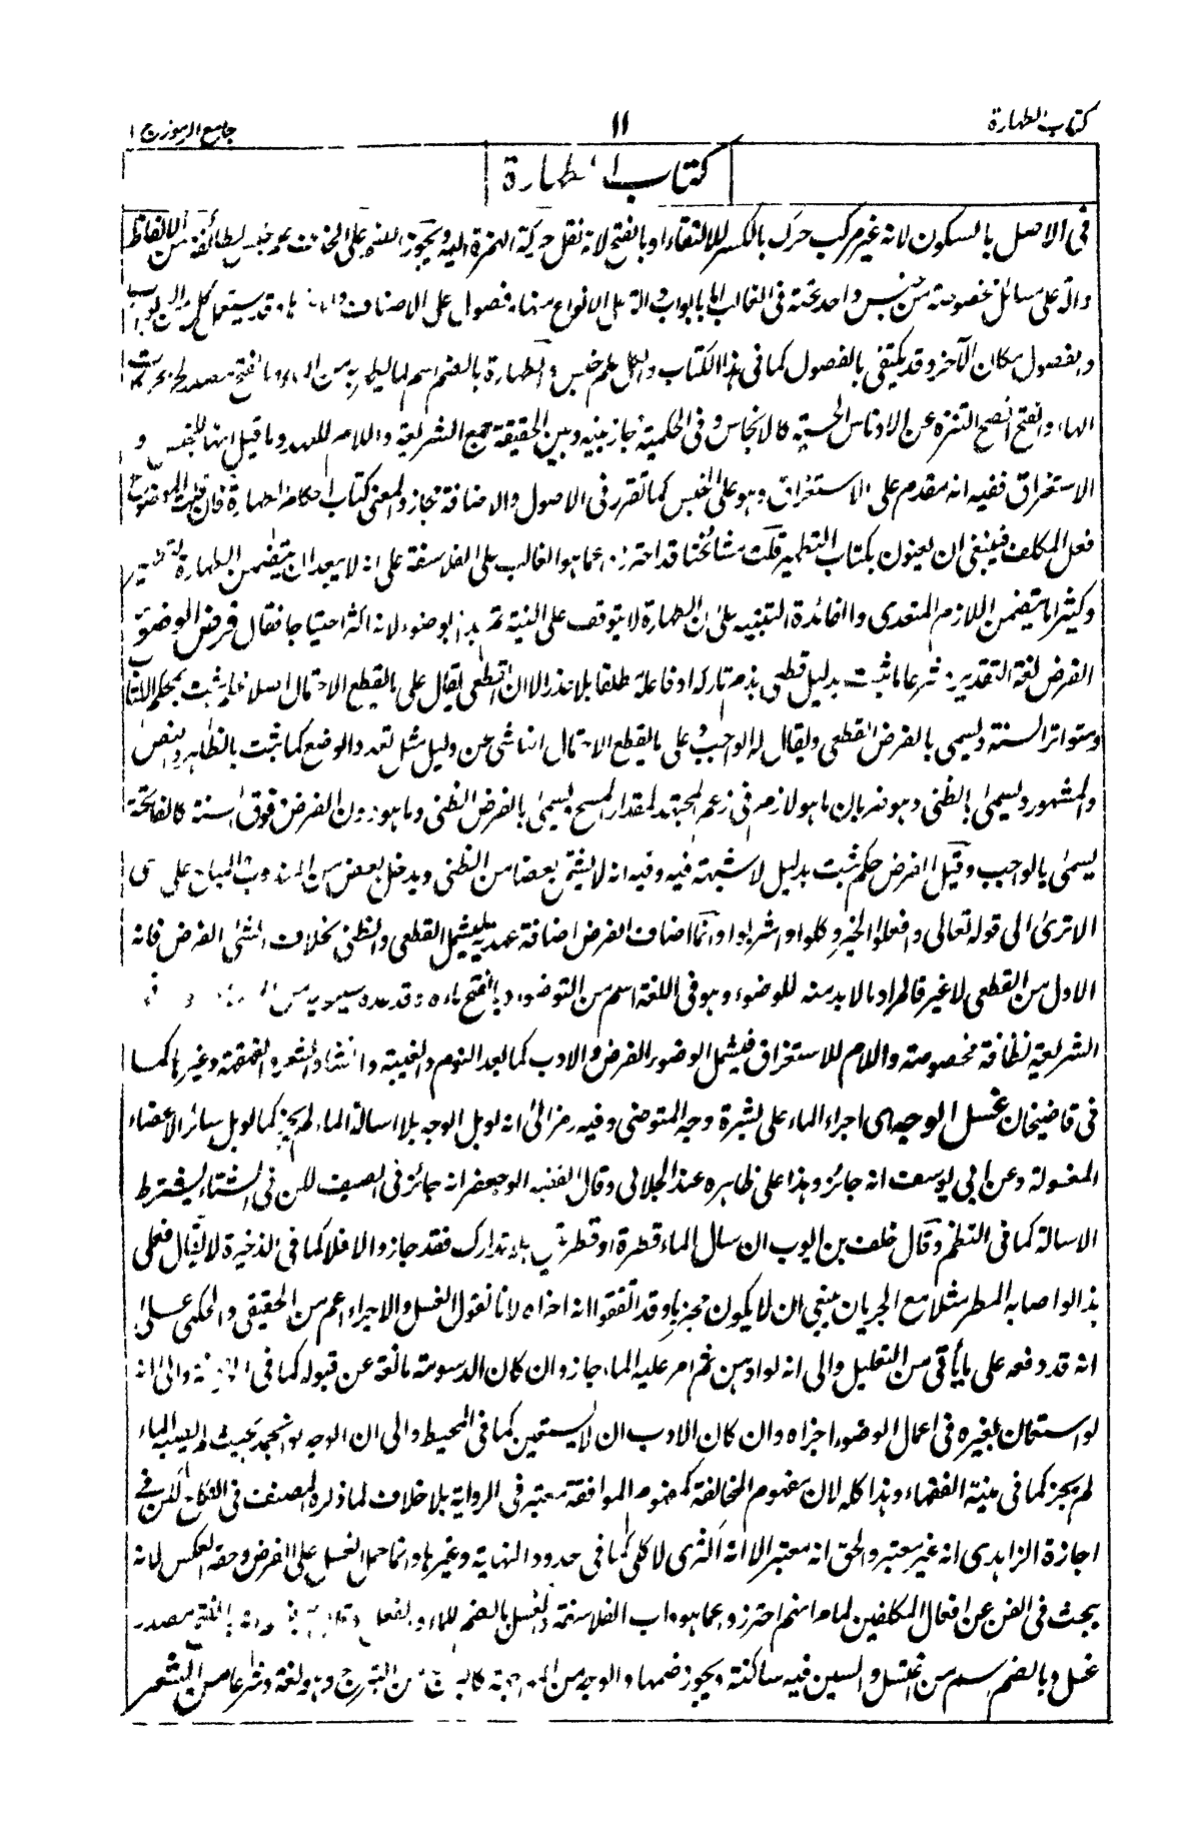 كتاب الطهارة
١١
جامع الرموز ج ١
كتاب الطهارة
فى الاصل بالسكون لانه غير مركب حرك بالكسر للالتقاء او بالفتح لانه نقل حركة الهمزة اليه ويجوز الضم على الحذف لطائفة من الالفاظ
دالة على مسائل مخصوصة من جنس واحد تحته فى الغالب اما ابواب دالة على الانواع منها و فصول على الاصناف قد يستعمل كل من الابواب
والفصول مكان الآخر وقد يكتفى بالفصول كما فى هذا الكتاب والكل علم جنس و الطهارة بالضم اسم لما يطهر به من الماء وبالفتح مصدر
الهاء والفتح افصح التنزه عن الادناس الحسية كالانجاس وفى الحكمية مجاز بينه وبين الحقيقة جمع الشريعة واللام للعهد وما قيل انها للجنس و
الاستغراق ففيه انه مقدم على الاستغراق وهو على الجنس كما تقرر فى الاصول والاضافة مجاز والمعنى كتاب احكام الطهارة فان قلت الموضوع
فعل المكلف فينبغى ان يعنون بكتاب التطهير قلت مشائخنا قد احترزوا عما هو الغالب على الفلاسفة على انه لا يبعد ان يتضمن الطهارة التطهير
وكثيرا ما يتضمن اللازم المتعدى والفائدة التنبيه على ان الطهارة لا يتوقف على النية ثم بدأ بالوضوء لانه اكثر احتياجا فقال فرض الوضوء
الفرض لغة التقدير و شرعا ما ثبت بدليل قطعى يذم تاركه او فاعله مطلقا بلا عذر الا ان القطعى يقال على ما يقطع الاحتمال اصلا كما يثبت بمحكم الكتاب
ومتواتر السنة ويسمى بالفرض القطعى ويقال له الواجب و على ما يقطع الاحتمال الناشى عن دليل مثل تعدد الوضع كما ثبت بالظاهر والنص
والمشهور ويسمى بالظنى وهو ضربان ما هو لازم فى زعم المجتهد كمقدار المسح يسمى بالفرض الظنى وما هو دون الفرض فوق السنة كالفاتحة
يسمى بالواجب وقيل الفرض حكم ثبت بدليل لا شبهة فيه وفيه انه لا يشمل بعضا من الظنى ويدخل بعض من المندوب المباح على
الا ترى الى قوله تعالى وافعلوا الخير وكلوا واشربوا وانما اضاف الفرض اضافة عهدية ليشمل القطعى والظنى بخلاف الفرض فانه
الاول من القطعى لا غير فالمراد ما لا بد منه للوضوء وهو فى اللغة اسم من التوضوء وبالفتح ماءه وقد عده سيبويه من
الشريعة نظافة مخصوصة واللام للاستغراق فيشمل الوضوء الفرض والادب كما بعد النوم والغيبة وانشاد الشعر والقهقهة وغيرها كما
فى قاضيخان غسل الوجه اى اجراء الماء على بشرة وجه المتوضى وفيه رمز الى انه لو بل الوجه بلا اسالة الماء لم يجز كما لو بل سائر الاعضاء
المغسولة وعن ابى يوسف انه جائز وهذا على ظاهره عند الجلابى وقال الفقيه ابو جعفر انه جائز فى الصيف لكن فى الشتاء يشترط
الاسالة كما فى النظم وقال خلف بن ايوب ان سال الماء قطرة او قطرتين بلا تدارك فقد جاز والا فلا كما فى الذخيرة لا يقال فعلى
هذا لو اصابه المطر مثلا مع الجريان ينبغى ان لا يكون مجزيا وقد اتفقوا انه اجزاه لانا نقول الغسل والاجراء اعم من الحقيقى والحكمى على
انه قد دفعه على ما يأتى من التعليل والى انه لو ادهن ثم امر عليه الماء جاز وان كان الدسومة مانعة عن قبوله كما فى والى انه
لو استعان بغيره فى اعمال الوضوء اجزاه وان كان الادب ان لا يستعين كما فى المحيط والى ان الوجه لو انجمد بحيث لم يصبه الماء
لم يجز كما فى منية الفقهاء وهذا كله لان مفهوم المخالفة كمفهوم الموافقة معتبر فى الرواية بلا خلاف لما ذكره المصنف فى النكاح لكن فى
اجازة الزاهدى انه غير معتبر والحق انه معتبر الا انه اكثرى لا كلى كما فى حدود النهاية وغيرها وانما حمل الغسل على الفرض وحقه العكس لانه
يبحث فى الفن عن افعال المكلفين لما مر انهم احترزوا عما هو داب الفلاسفة والغسل بالضم للماء والفعل بالفتح مصدر
غسل وبالضم اسم من اغتسل والسين فيه ساكنة ويجوز ضمها والوجه من المواجهة وهو لغة وشرعا من الشعر